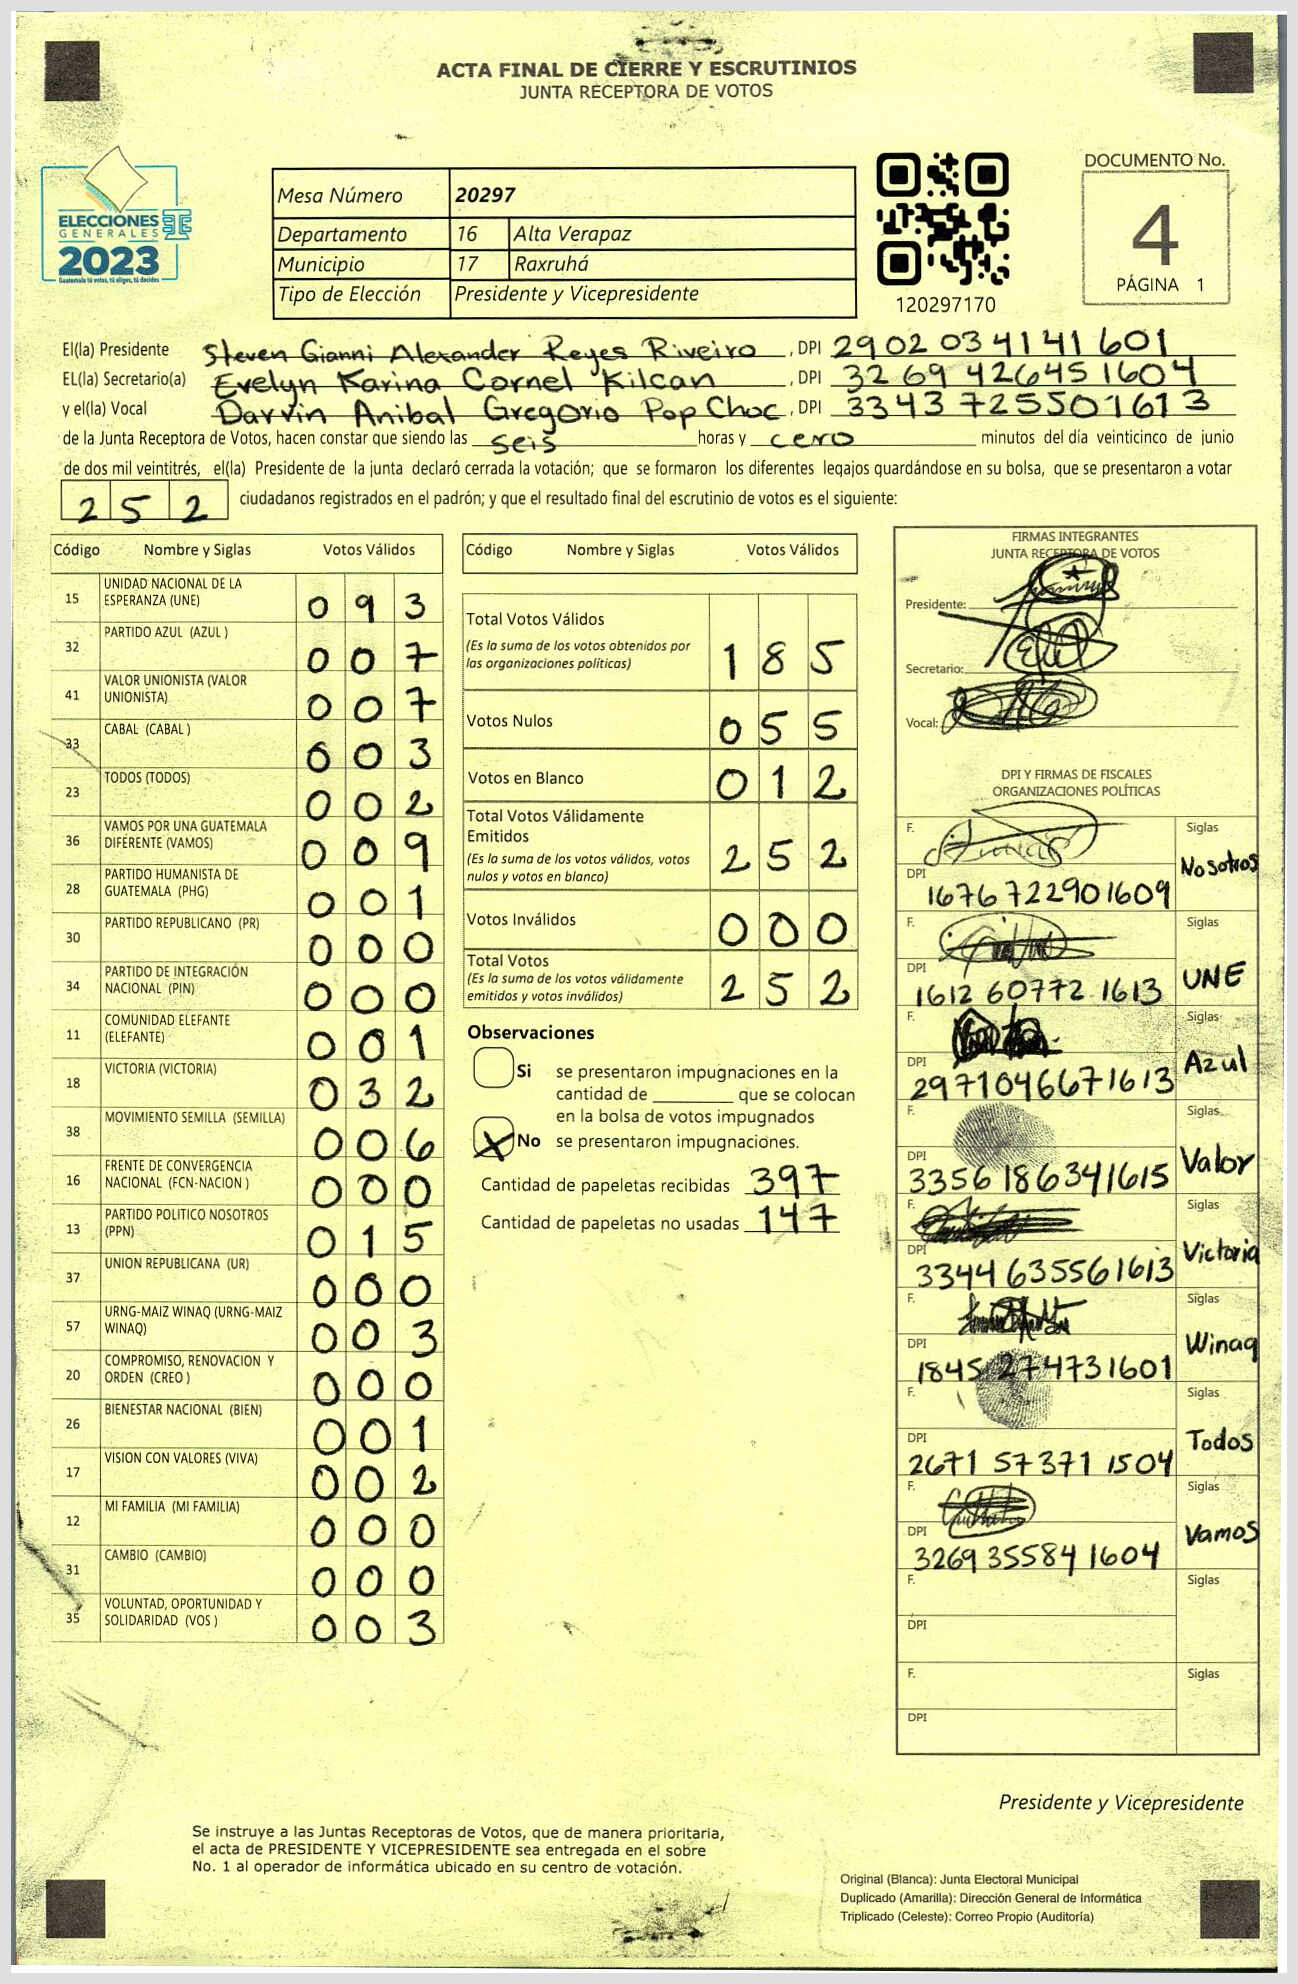 ACTA FINAL DE CIERRE Y ESCRUTINIOS
JUNTA RECEPTORA DE VOTOS
ELECCIONES
GENERALES
2023
Guatemala tú votas, tú eliges, tú decides
Mesa Número 20297
Departamento 16 Alta Verapaz
Municipio 17 Raxruhá
Tipo de Elección Presidente y Vicepresidente
120297170
DOCUMENTO No.
4
PÁGINA 1
El(la) Presidente Steven Gianni Alexander Reyes Riveiro , DPI 2902 03414 1601
EL(la) Secretario(a) Evelyn Karina Cornel Kilcan , DPI 3269 42645 1604
y el(la) Vocal Darvin Anibal Gregorio Pop Choc , DPI 3343 72550 1613
de la Junta Receptora de Votos, hacen constar que siendo las seis horas y cero minutos del día veinticinco de junio
de dos mil veintitrés, el(la) Presidente de la junta declaró cerrada la votación; que se formaron los diferentes legajos quardándose en su bolsa, que se presentaron a votar
252 ciudadanos registrados en el padrón; y que el resultado final del escrutinio de votos es el siguiente:
Código Nombre y Siglas Votos Válidos
15 UNIDAD NACIONAL DE LA
ESPERANZA (UNE) 093
32 PARTIDO AZUL (AZUL ) 007
41 VALOR UNIONISTA (VALOR
UNIONISTA) 007
33 CABAL (CABAL ) 003
23 TODOS (TODOS) 002
36 VAMOS POR UNA GUATEMALA
DIFERENTE (VAMOS) 009
28 PARTIDO HUMANISTA DE
GUATEMALA (PHG) 001
30 PARTIDO REPUBLICANO (PR) 000
34 PARTIDO DE INTEGRACIÓN
NACIONAL (PIN) 000
11 COMUNIDAD ELEFANTE
(ELEFANTE) 001
18 VICTORIA (VICTORIA) 032
38 MOVIMIENTO SEMILLA (SEMILLA) 006
16 FRENTE DE CONVERGENCIA
NACIONAL (FCN-NACION ) 000
13 PARTIDO POLITICO NOSOTROS
(PPN) 015
37 UNION REPUBLICANA (UR) 000
57 URNG-MAIZ WINAQ (URNG-MAIZ
WINAQ) 003
20 COMPROMISO, RENOVACION Y
ORDEN (CREO ) 000
26 BIENESTAR NACIONAL (BIEN) 001
17 VISION CON VALORES (VIVA) 002
12 MI FAMILIA (MI FAMILIA) 000
31 CAMBIO (CAMBIO) 000
35 VOLUNTAD, OPORTUNIDAD Y
SOLIDARIDAD (VOS ) 003
Código Nombre y Siglas Votos Válidos
Total Votos Válidos
(Es la suma de los votos obtenidos por
las organizaciones políticas) 185
Votos Nulos 055
Votos en Blanco 012
Total Votos Válidamente
Emitidos
(Es la suma de los votos válidos, votos
nulos y votos en blanco) 252
Votos Inválidos 000
Total Votos
(Es la suma de los votos válidamente
emitidos y votos inválidos) 252
Observaciones
Si se presentaron impugnaciones en la
cantidad de ________ que se colocan
en la bolsa de votos impugnados
X No se presentaron impugnaciones.
Cantidad de papeletas recibidas 397
Cantidad de papeletas no usadas 147
FIRMAS INTEGRANTES
JUNTA RECEPTORA DE VOTOS
Presidente:
Secretario:
Vocal:
DPI Y FIRMAS DE FISCALES
ORGANIZACIONES POLÍTICAS
F. Siglas
Nosotros
DPI
1676 72290 1609
F. Siglas
UNE
DPI
1612 60772 1613
F. Siglas
Azul
DPI
2971 04667 1613
F. Siglas
Valor
DPI
3356 18634 1615
F. Siglas
Victoria
DPI
3344 63556 1613
F. Siglas
Winaq
DPI
1845 27473 1601
F. Siglas
Todos
DPI
2671 57371 1504
F. Siglas
Vamos
DPI
3269 35584 1604
F. Siglas
DPI
F. Siglas
DPI
Presidente y Vicepresidente
Se instruye a las Juntas Receptoras de Votos, que de manera prioritaria,
el acta de PRESIDENTE Y VICEPRESIDENTE sea entregada en el sobre
No. 1 al operador de informática ubicado en su centro de votación.
Original (Blanca): Junta Electoral Municipal
Duplicado (Amarilla): Dirección General de Informática
Triplicado (Celeste): Correo Propio (Auditoría)